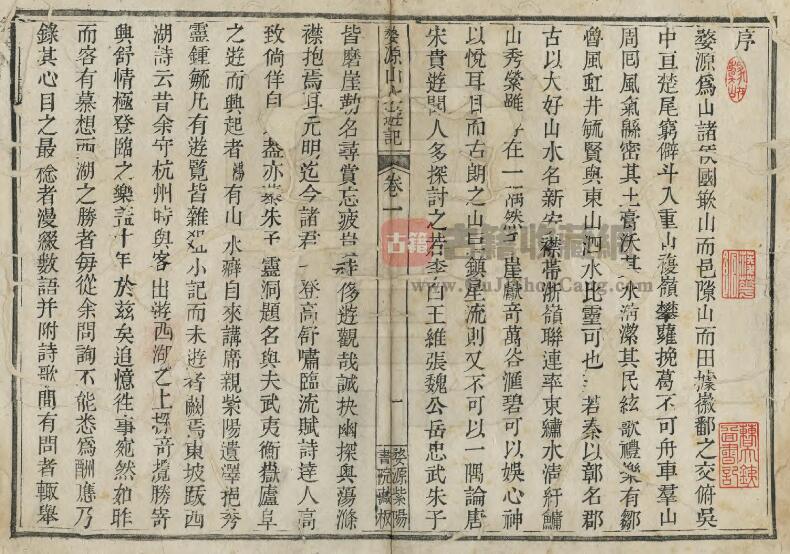 序
婺源爲山諸矦國鏾山而邑隙山而田據徽鄱之交俯吳
中亘楚尾窮僻斗入重山複嶺攀蘿挽葛不可舟車羣山
周囘風氣緜密其土膏沃其水淸潔其民絃歌禮樂有鄒
魯風虹井毓賢與東山泗水比靈可也若秦以鄣名郡
古以大好山水名新安襟帶浙嶺聯連率東繡水淸紆鱅
山秀縈雖在一隅然千崖獻奇萬谷滙碧可以娛心神
以悅耳目而古朗之山巨鎮星流則又不可以一隅論唐
宋貴遊閒人多探討之若李白王維張魏公岳忠武朱子
婺源山水遊記
卷一
一
婺源紫陽
書院藏板
皆磨崖勒名尋賞忘疲豈侈遊觀哉誠抉幽探輿蕩滌
襟抱焉耳元明迄今諸君登高舒嘯臨流賦詩達人高
致倘佯自盡亦幕朱子靈洞題名與夫武夷衡嶽廬阜
之遊而興起者鴻有山水癖自來講席親紫陽遺澤挹秀
靈鍾毓凡有遊覽皆雜小記而未遊者闕焉東坡跋西
湖詩云昔余守杭州時與客出遊西湖之上探奇攬勝寄
興舒情極登臨之樂葢十年於茲矣追憶徃事宛然如昨
而客有慕想西湖之勝者每從余問詢不能悉爲酬應乃
錄其心目之最稔者漫綴數語并附詩歌間有問者輒舉
古籍收藏網
www.GuJiShouCang.com